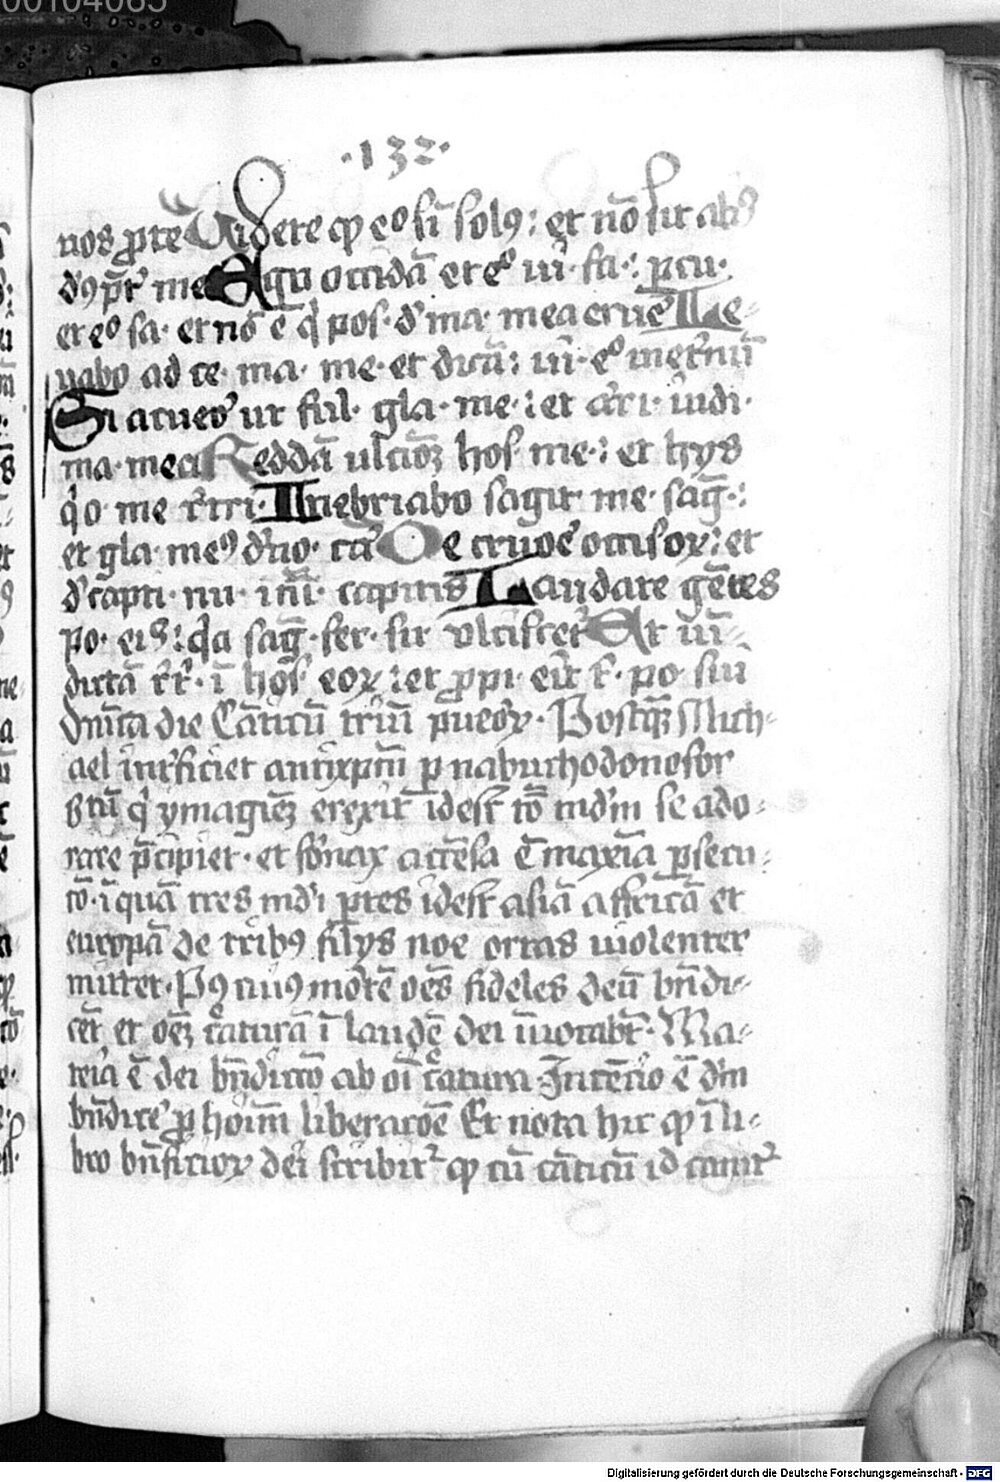 ·132·
nos ꝓteᷓ Videte ꝙ eᵒ sū̄ solꝰ: et nō sit aliꝰ
dꝰ p̄t̄ me Ego occidā et eᵒ viu̅ fa: ꝑcu·
et eᵒ sa· et nō ē q̇ pos· d̓ ma· mea eruē Le-
uabo ad ce· ma· me· et dicā: viu̅ eᵒ inet̓nū
Si acueō ut ful· gla· me·: et ar̓i· iudi·
ma· mea Reddā ulcōꝫ hos· me·: et hys
q̇ o· me r̓tri· Inebriabo sagit· me· sāg·:
et gla· meꝰ d̓uo· cā De cruoē occisoꝝ: et
d̓ capti· nu· ini̅· capitis Laudate gētes
po· eiꝰ: q̇a sāg· ser· su̅ vlciscet᷑ Et vin̅-
dictā r̓t̓· ī hos· eoꝝ: et ꝓpi· eit̄ t̓· po· sui
Qui̅ta die Cāticū triū pueōꝝ· Postq̄ꝫ Mich-
ael int̓ficiet antixp̄m ꝑ nabuchodonosor
Gtū q̇ ymagieꝫ erexit idest tō mūd̓m se ado-
rare p̄cipiet· et fornax accēsa ē maxīa ꝑsecu-
cō· ī quā tres mūdi ꝑtes idest asiā affricā et
europā de tribꝰ filijs noe ortas violenter
mittet· Pꝰ cuiꝰ mortē oēs fideles deū bn̄di-
cēt et oēꝫ c̓aturā ī laudē dei īuocabt̄· Ma-
teīa ē dei bn̄dictō ab oī c̓atura· Intēcio ē d̓m
bn̄diceᷓ ꝓ hoīm liberacōe Et nota hic ꝙ ī li-
bro bn̄ficioꝝ dei scribit᷑ ꝙ cū cāticū id canit᷑
Digitalisierung gefördert durch die Deutsche Forschungsgemeinschaft - DFG